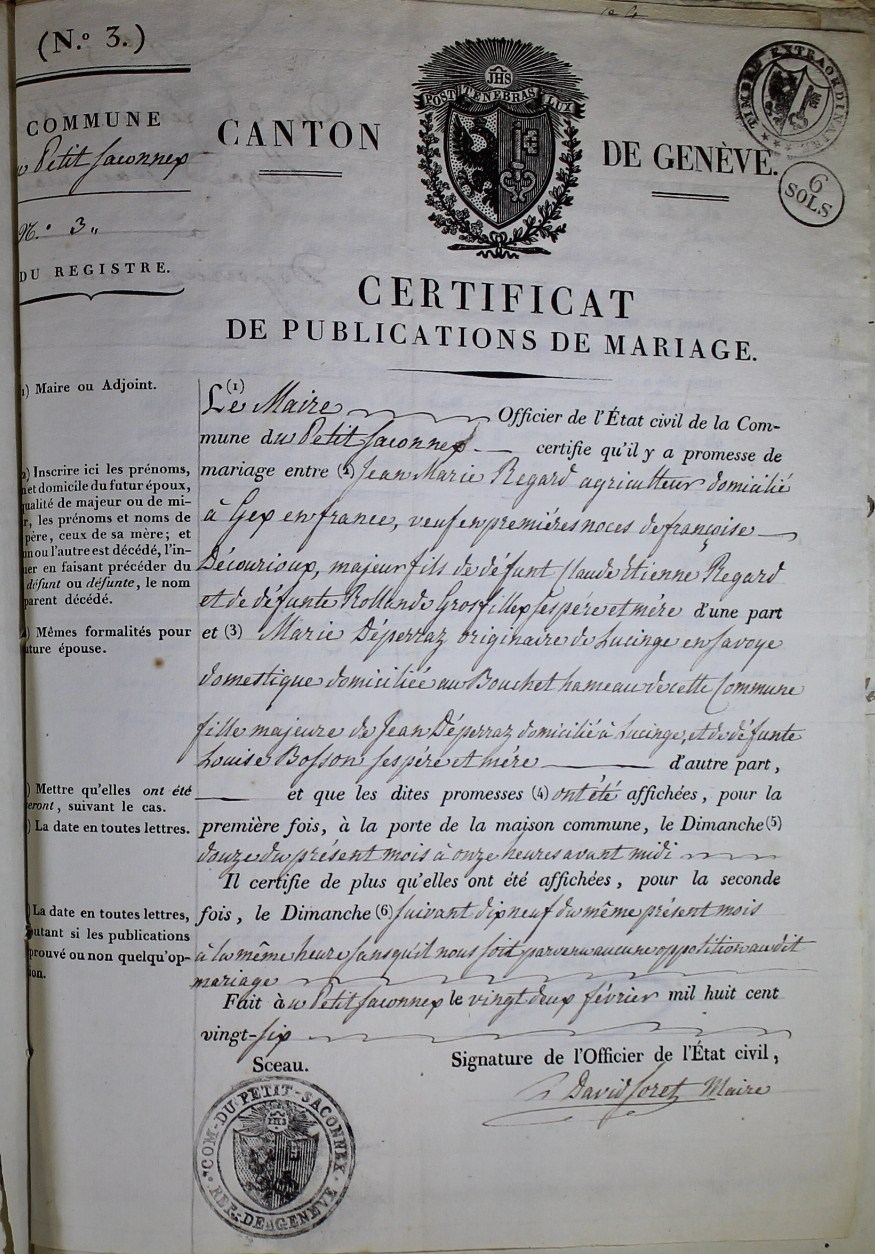 (N.º 3.)
COMMUNE
Petit Saconnex
N.º 3 "
DU REGISTRE.
CANTON
POST TENEBRAS LUX
JHS
DE GENÈVE.
TIMBRE EXTRAORDINAIRE
6
SOLS
CERTIFICAT
DE PUBLICATIONS DE MARIAGE.
) Maire ou Adjoint.
) Inscrire ici les prénoms,
et domicile du futur époux,
ualité de majeur ou de mi-
r, les prénoms et noms de
père, ceux de sa mère; et
un ou l'autre est décédé, l'in-
er en faisant précéder du
défunt ou défunte, le nom
parent décédé.
) Mêmes formalités pour
uture épouse.
) Mettre qu'elles ont été
eront, suivant le cas.
) La date en toutes lettres.
) La date en toutes lettres,
outant si les publications
prouvé ou non quelqu'op-
ion.
(1)
Le Maire Officier de l'État civil de la Com-
mune du Petit Saconnex certifie qu'il y a promesse de
mariage entre (2) Jean Marie Regard agriculteur domicilié
à Gex en france, veuf en premières noces de françoise
Décourioux, majeur fils de défunt Claude Etienne Regard
et de défunte Rollande Grosfillex ses père et mère d'une part
et (3) Marie Déperraz originaire de Lucinge en Savoye
domestique domiciliée au Bouchet hameau de cette Commune
fille majeure de Jean Déperraz domicilié à Lucinge, et de défunte
Louise Bosson ses père et mère d'autre part,
et que les dites promesses (4) ont été affichées, pour la
première fois, à la porte de la maison commune, le Dimanche (5)
douze du présent mois à onze heures avant midi
Il certifie de plus qu'elles ont été affichées, pour la seconde
fois, le Dimanche (6) suivant dix neuf du même présent mois
à la même heure sans qu'il nous soit parvenu aucune opposition au dit
mariage
Fait à u Petit Saconnex le vingt deux février mil huit cent
vingt-six
Sceau.
Signature de l'Officier de l'État civil,
David Soret Maire
COM. DU PETIT-SACONNEX
JHS
REP. DE GENEVE